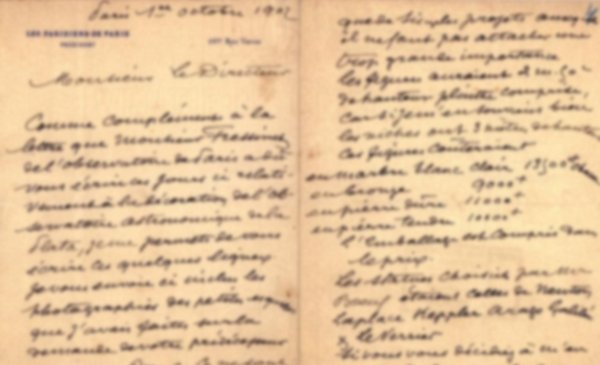 Paris 1er octobre 190
LES PARISIENS DE PARIS
Monsieur le Directeur
Comme complément à la
lettre que Monsieur
de l'observatoire de Paris a dû
vous écrire ces jours ci relati-
vement à la décoration de l'ob-
servatoire astronomique de la
Plata, je me permets de vous
écrire ces quelques lignes
Je vous envoie ci inclus les
photographies des petites
que j'avais faites sur la
demande de votre prédécesseur
que de simples projets auxquels
il ne faut pas attacher une
trop grande importance
les figures auraient 2 m.
de hauteur plinthe comprise,
car si j'ai
les niches ont 3 mètres de hauteur
Ces figures coûteraient
en marbre blanc clair
en bronze 9000
en pierre dure 11000
en pierre tendre 10000
l'Emballage est compris dans
le prix
Les statues choisies par Mr
étaient celles de Newton
Laplace Keppler Arago Galilée
& Le Verrier
Si vous vous décidiez à m'en